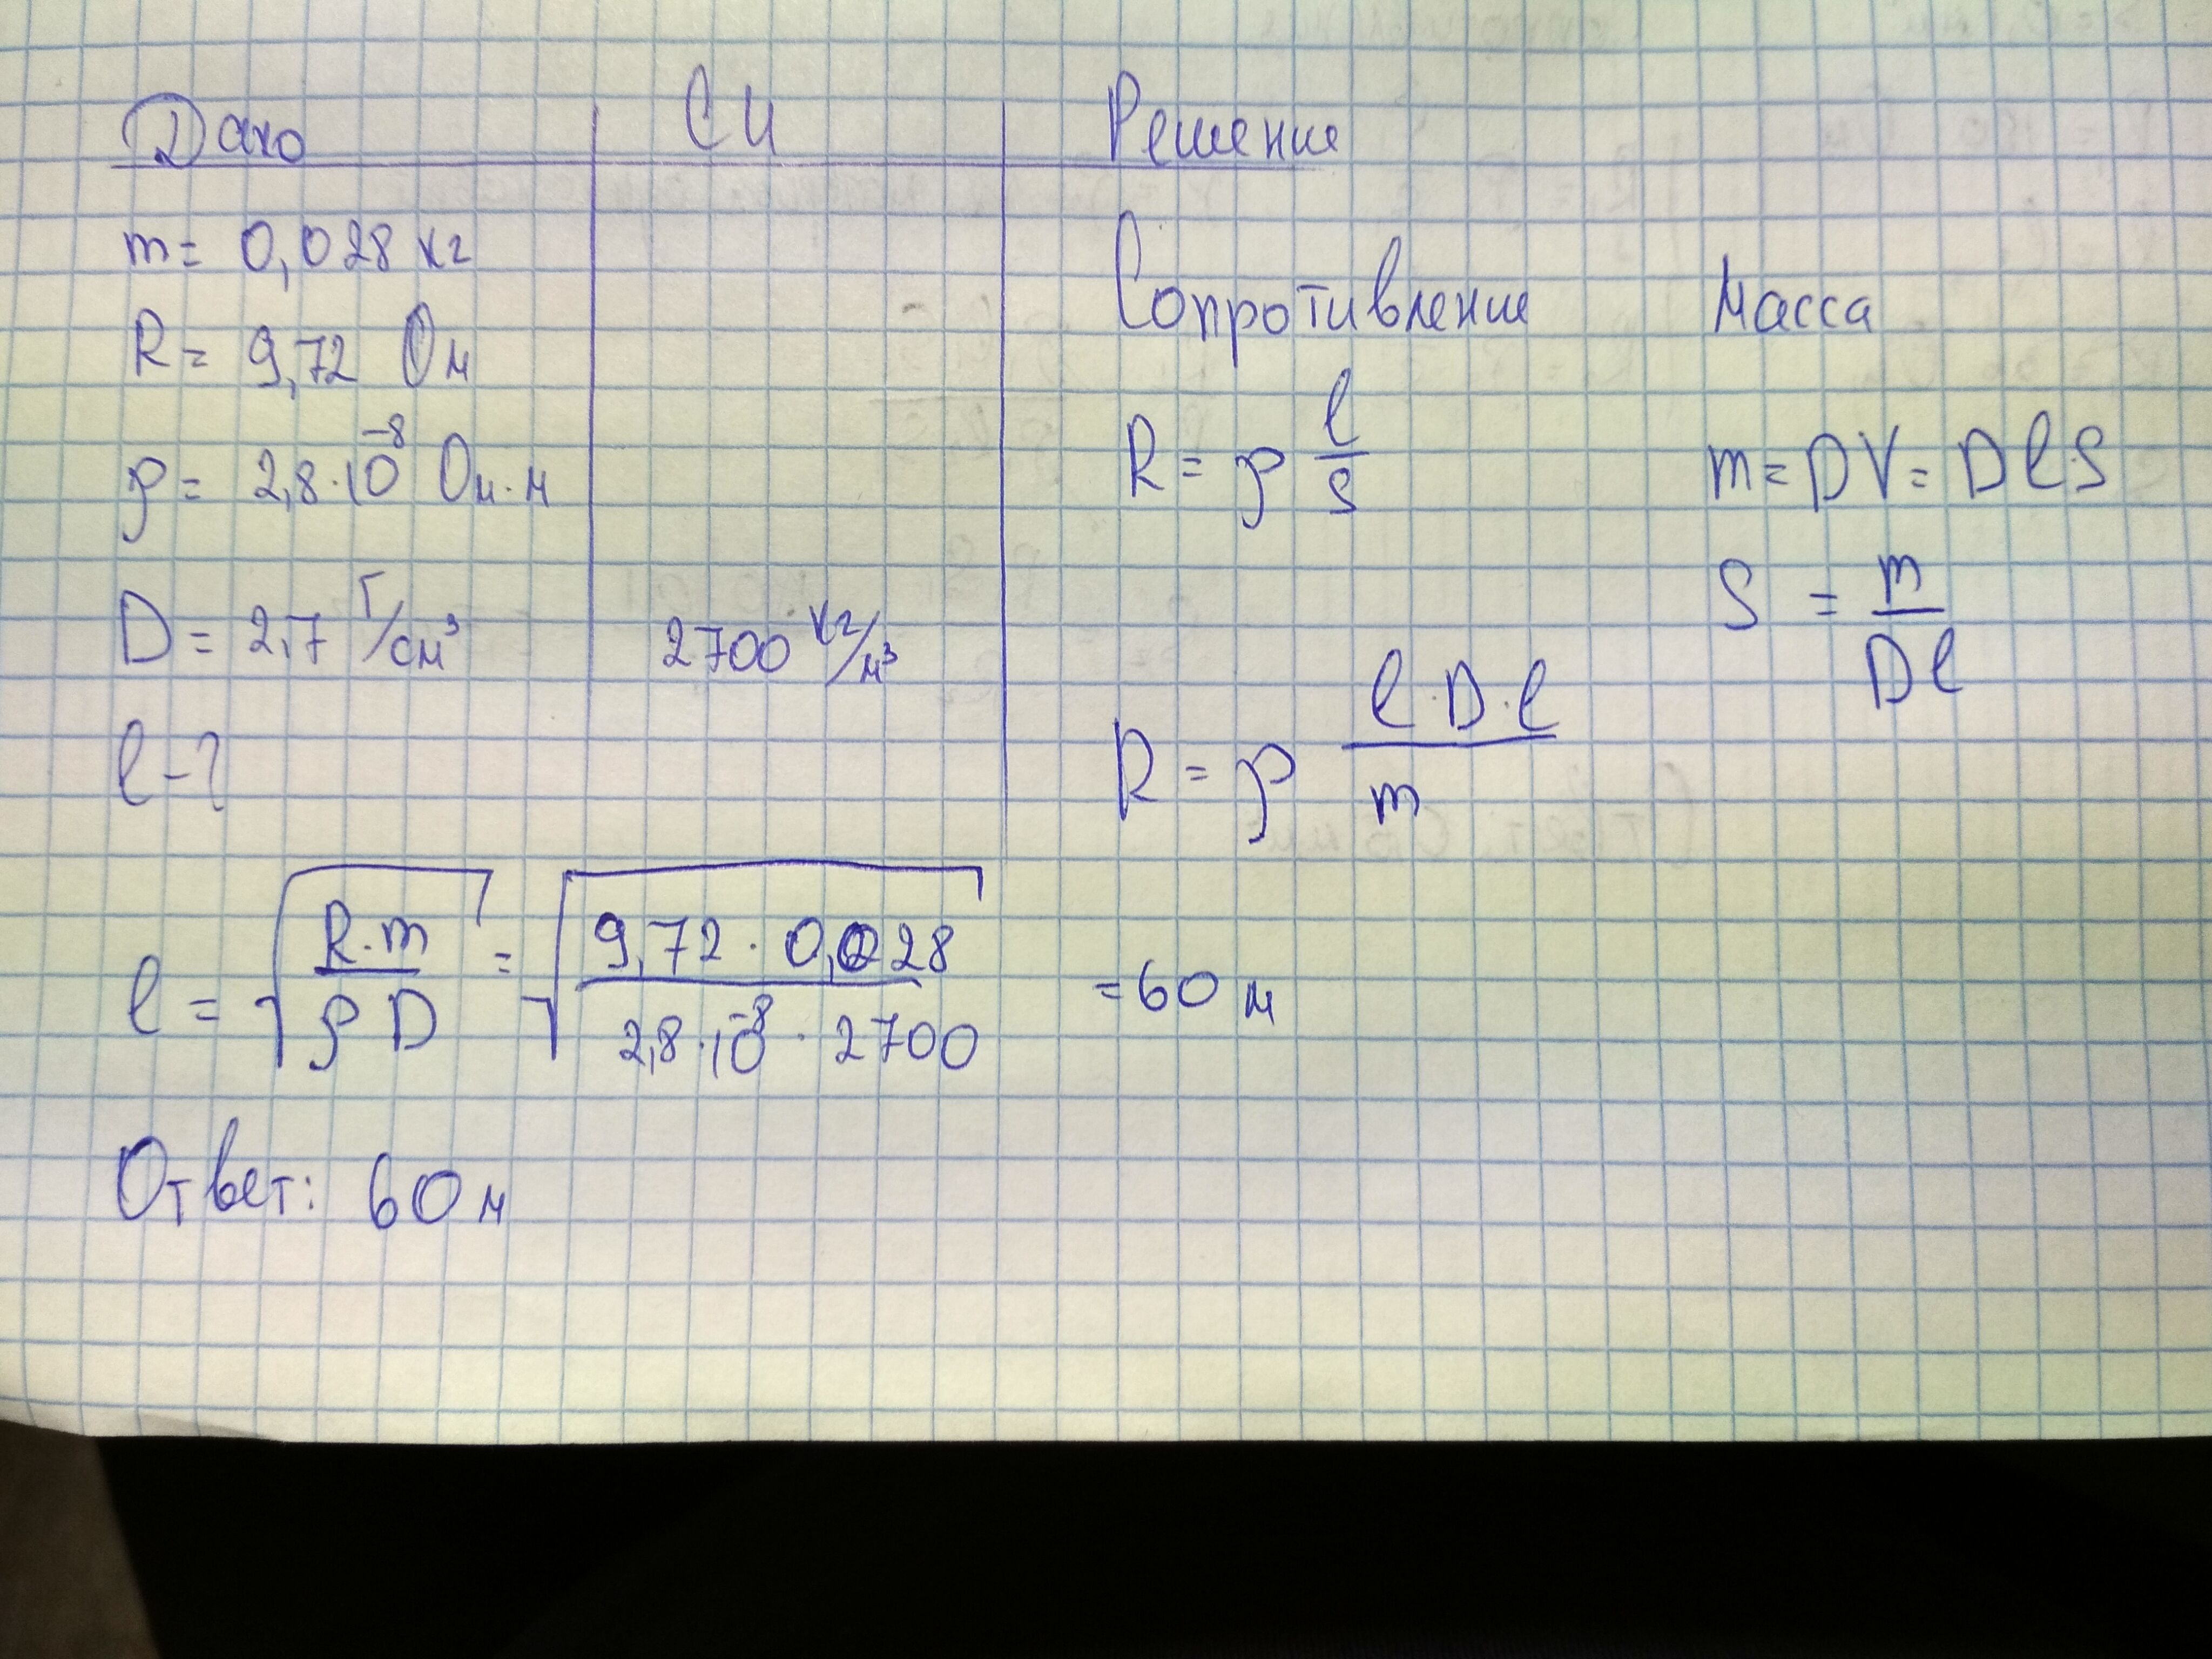 Дано СИ Решение
m = 0,028 кг
R = 9,72 Ом
ρ = 2,8·10⁻⁸ Ом·м
D = 2,7 Г/см³ 2700 кг/м³
l - ?
Сопротивление Масса
R = ρ l/S m = DV = DlS
S = m/Dl
R = ρ l·D·l/m
l = √(R·m/ρD) = √(9,72·0,028/2,8·10⁻⁸·2700) = 60 м
Ответ: 60 м